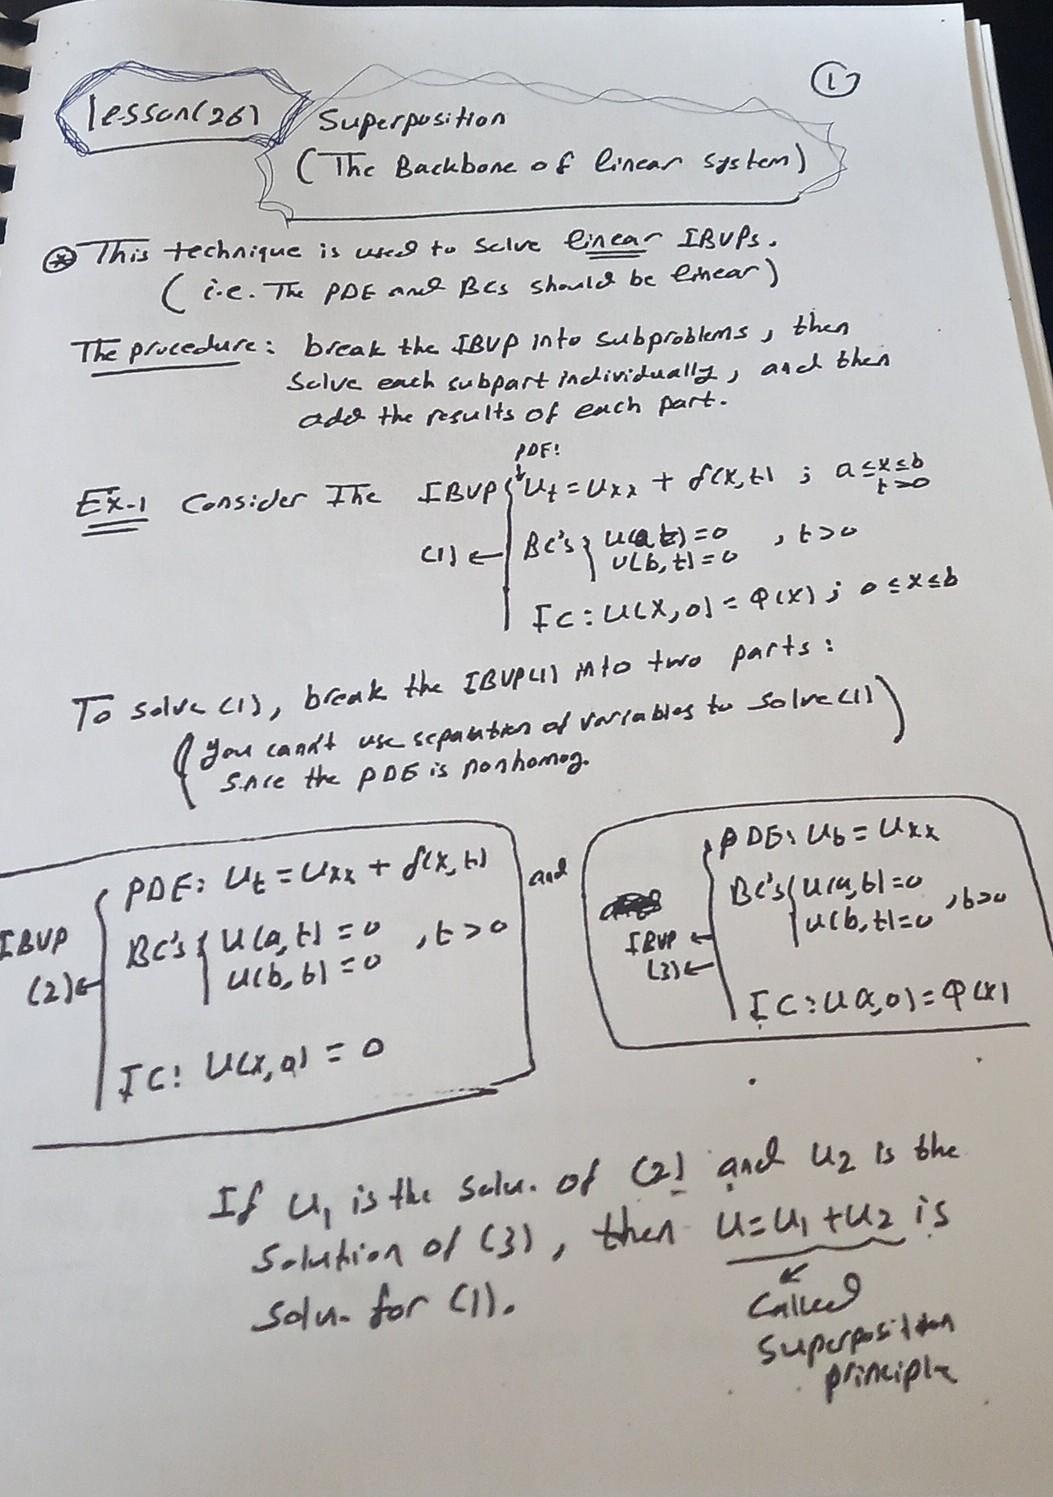 1
lesson(26)
Superposition
(The Backbone of linear system)
* This technique is used to solve linear IBVPs.
(i.e. The PDE and BCs should be linear)
The procedure: break the IBVP into subproblems, then
solve each subpart individually, and then
add the results of each part.
PDE:
Ex-1 Consider The IBVP { ut = uxx + f(x,t) ; a ≤ x ≤ b
t>0
(1) ← BC's { u(a,t)=0 , t>0
u(b,t)=0
IC: u(x,0) = φ(x) ; 0 ≤ x ≤ b
To solve (1), break the IBVP(1) into two parts:
(you can't use separation of variables to solve (1)
since the PDE is nonhomog.)
PDE: ut = uxx + f(x,t)
IBVP
(2) ←
BC's { u(a,t) = 0 , t>0
u(b,t) = 0
IC: u(x,0) = 0
and
PDE: ut = uxx
BC's { u(a,t)=0 , t>0
u(b,t)=0
IBVP ←
(3) ←
IC: u(x,0) = φ(x)
If u1 is the solu. of (2) and u2 is the
solution of (3), then u=u1+u2 is
solu. for (1).
Called
superposition
principle